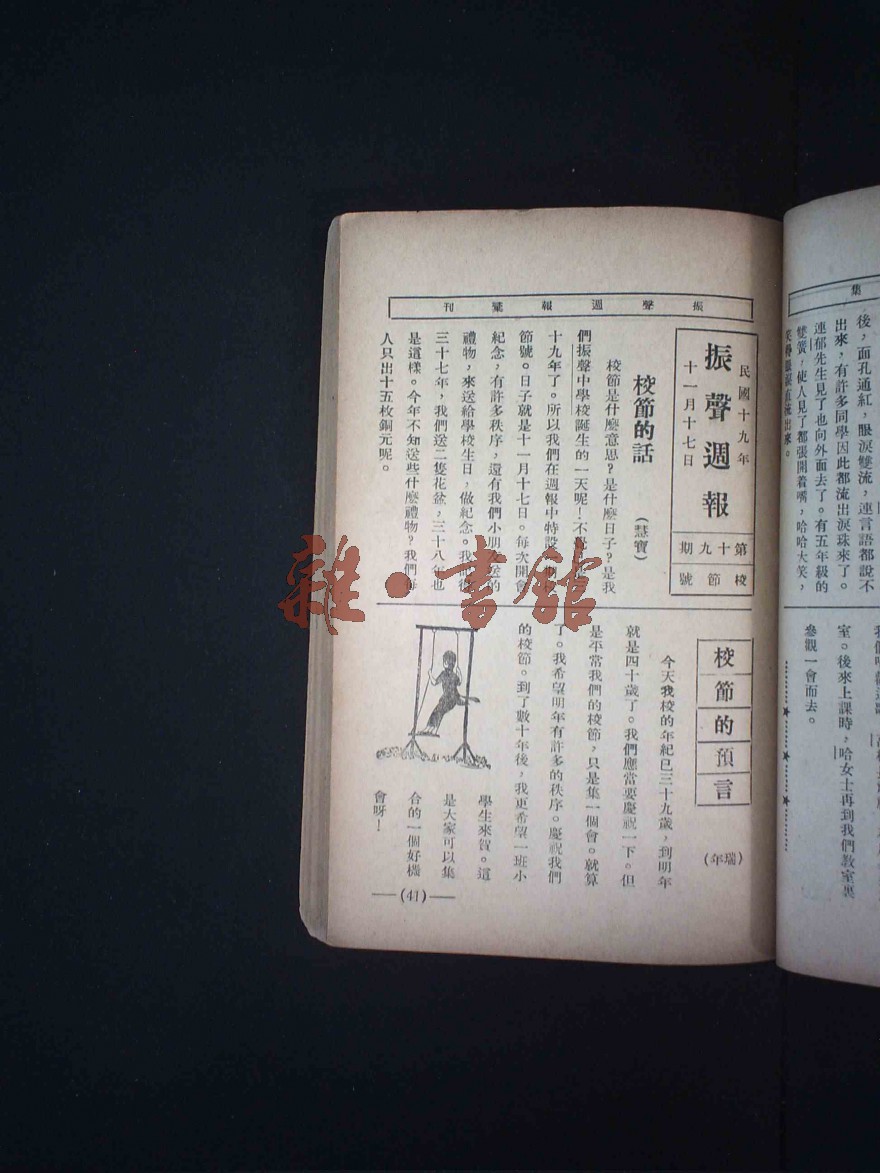 集
後，面孔通紅，眼淚雙流，連言語都說不
出來，有許多同學因此都流出淚珠來了。
連郁先生見了也向外面去了。有五年級的
雙簧，使人見了都張開着嘴，哈哈大笑，
直流出來。
室。後來上課時，哈女士再到我們教室裏
參觀一會而去。
振聲週報彙刊
民國十九年
十一月十七日
振聲週報
第十九期
校節號
校節的話
（慧寶）
校節是什麼意思？是什麼日子？是我
們振聲中學校誕生的一天呢！不
十九年了。所以我們在週報中特設
節號。日子就是十一月十七日。每次開會
紀念，有許多秩序，還有我們小朋友送的
禮物，來送給學校生日，做紀念。我
三十七年，我們送二隻花盆，三十八年也
是這樣。今年不知送些什麼禮物？我們
人只出十五枚銅元呢。
校節的預言
（瑞年）
今天我校的年紀已三十九歲，到明年
就是四十歲了。我們應當要慶祝一下。但
是平常我們的校節，只是集一個會。就算
了。我希望明年有許多的秩序。慶祝我們
的校節。到了數十年後，我更希望一班小
學生來賀。這
是大家可以集
合的一個好機
會呀！
（41）
雜·書館